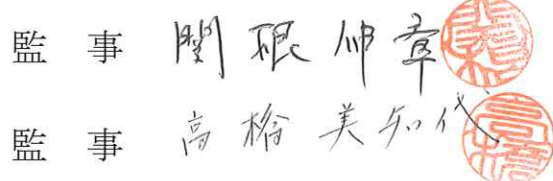 監事 関根 伸章
監事 高橋 美知代